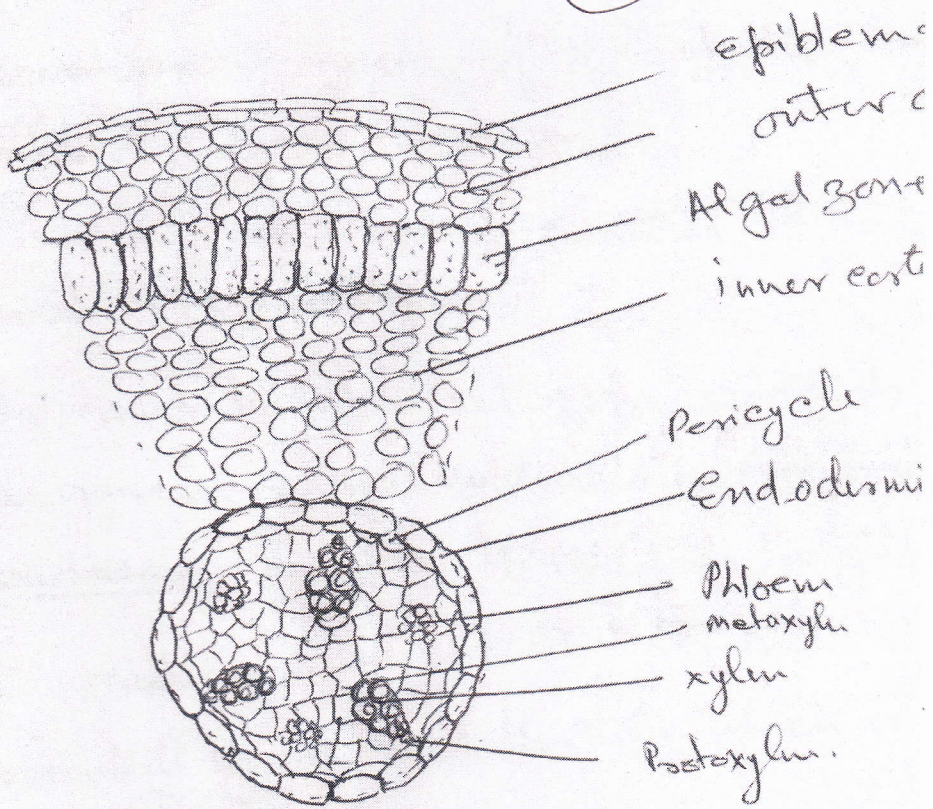 Epiblem
outer c
Algal zone
inner cort
Pericycle
Endodermi
Phloem
metaxylm
xylm
Protoxylm.